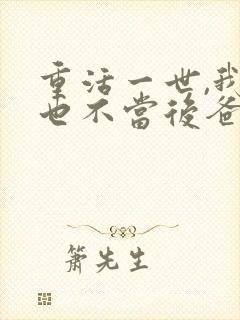 重活一世,我
也不當後爸
簫先生